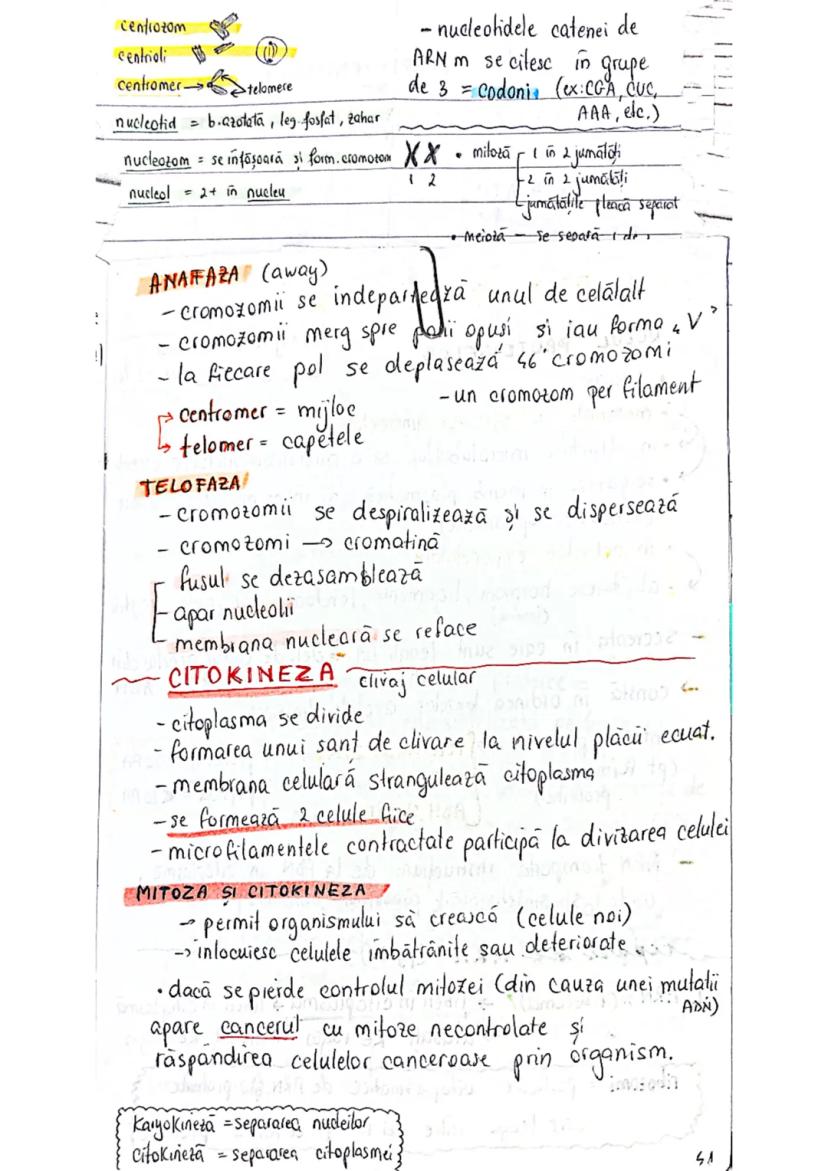 centrozom
centrioli
centromer → telomere
nucleotid = b.azotată, leg.fosfat, zahar
nucleozom = se înfășoară și form.cromozom
nucleol = 2+ în nucleu
- nucleotidele catenei de
ARN m se citesc în grupe
de 3 = codoni (ex: CGA, CUC,
AAA, etc.)
XX • mitoză 1 în 2 jumătăți
1 2 2 în 2 jumătăți
jumătățile pleacă separat
• meioză - se separă 1 de
ANAFAZA (away)
- cromozomii se indepartează unul de celălalt
- cromozomii merg spre polii opuși și iau forma „V”
- la fiecare pol se deplasează 46 cromozomi
- un cromozom per filament
centromer = mijloc
telomer = capetele
TELOFAZA
- cromozomii se despiralizează și se dispersează
- cromozomi → cromatină
fusul se dezasamblează
apar nucleolii
membrana nucleară se reface
CITOKINEZA clivaj celular
- citoplasma se divide
- formarea unui sant de clivare la nivelul plăcii ecuat.
- membrana celulară strangulează citoplasma
- se formează 2 celule fiice
- microfilamentele contractate participă la divizarea celulei
MITOZA ȘI CITOKINEZA
→ permit organismului să crească (celule noi)
→ inlocuiesc celulele îmbătrânite sau deteriorate
• dacă se pierde controlul mitozei (din cauza unei mutații
ADN)
apare cancerul cu mitoze necontrolate și
răspândirea celulelor canceroase prin organism.
Karyokineză = separarea nucleilor
Citokineză = separarea citoplasmei
51